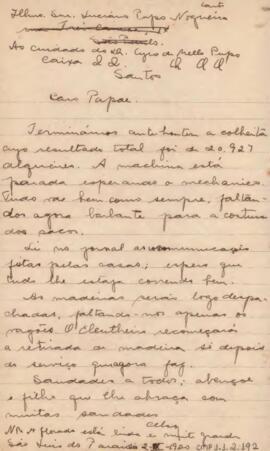 Illmo. Snr. Luciano Pupo Nogueira
Três
São Paulo
Ao Cuidado do Dr. Cyro de Mello Pupo
Caixa
Santos
Caro Papae.
Terminámos ante hontem a colheita
cujo resultado total foi de 20.927
alqueires. A machina está
parada esperando o mechanico.
Tudo vae bem como sempre, faltan-
do agora barbante para a costura
dos sacos.
Li no jornal as communicações
fotas pelas casas; espero que
tudo lhe esteja correndo bem.
As madeiras serão logo despa-
chadas, faltando-nos apenas os
vagões. O Eleutherio recomeçará
a retirada da madeira só depois
do serviço que agora faz.
Saudades a todos; abençoe
o filho que lhe abraça com
muitas saudades
Celso
NB. A florada está linda e muito grande
São Luis do Paraiso 2 1920 1.1.2.192